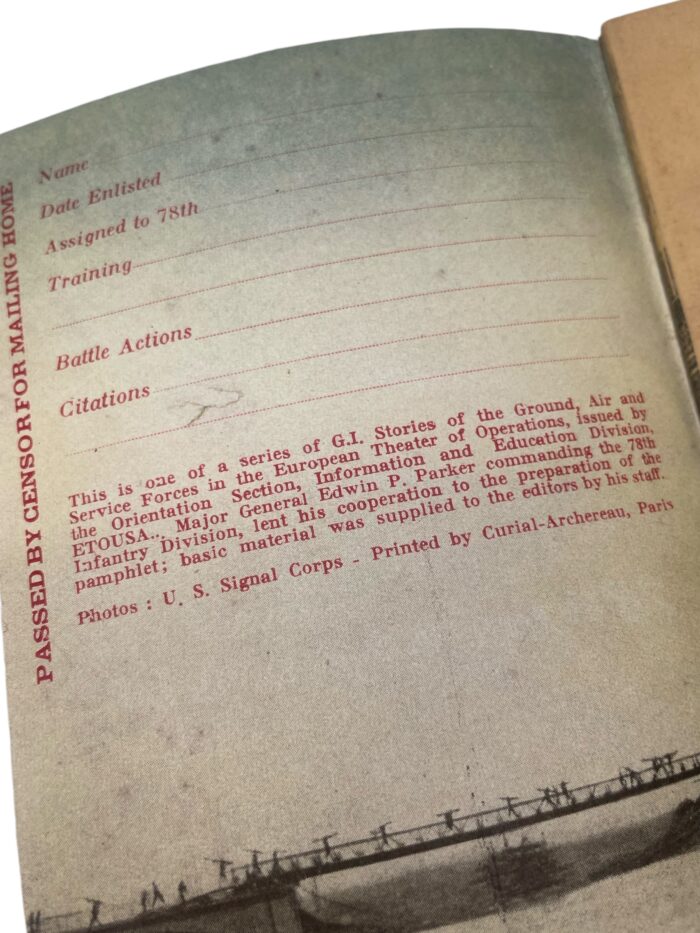 PASSED BY CENSOR FOR MAILING HOME
Name
Date Enlisted
Assigned to 78th
Training
Battle Actions
Citations
This is one of a series of G.I. Stories of the Ground, Air and
Service Forces in the European Theater of Operations, issued by
the Orientation Section, Information and Education Division,
ETOUSA.. Major General Edwin P. Parker commanding the 78th
Infantry Division, lent his cooperation to the preparation of the
pamphlet; basic material was supplied to the editors by his staff.
Photos : U. S. Signal Corps - Printed by Curial-Archereau, Paris